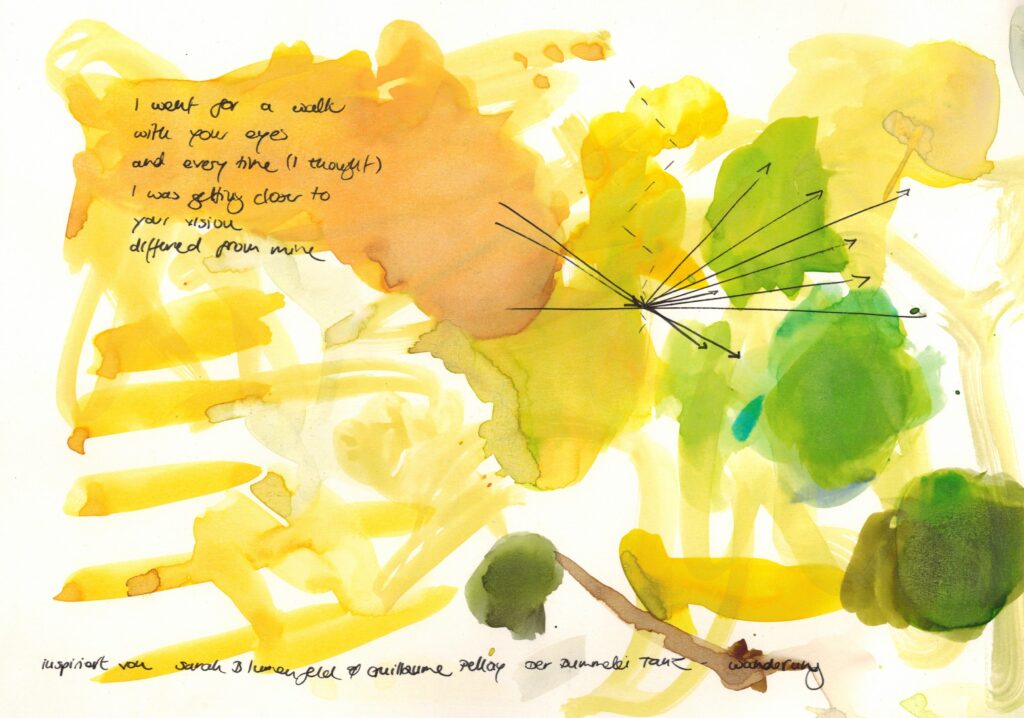 I went for a walk
with your eyes
and every time (I thought)
I was getting closer to
your vision
differed from mine
inspiriert von Sarah Blumenfeld & Guillaume Pellay Tanz - wanderung